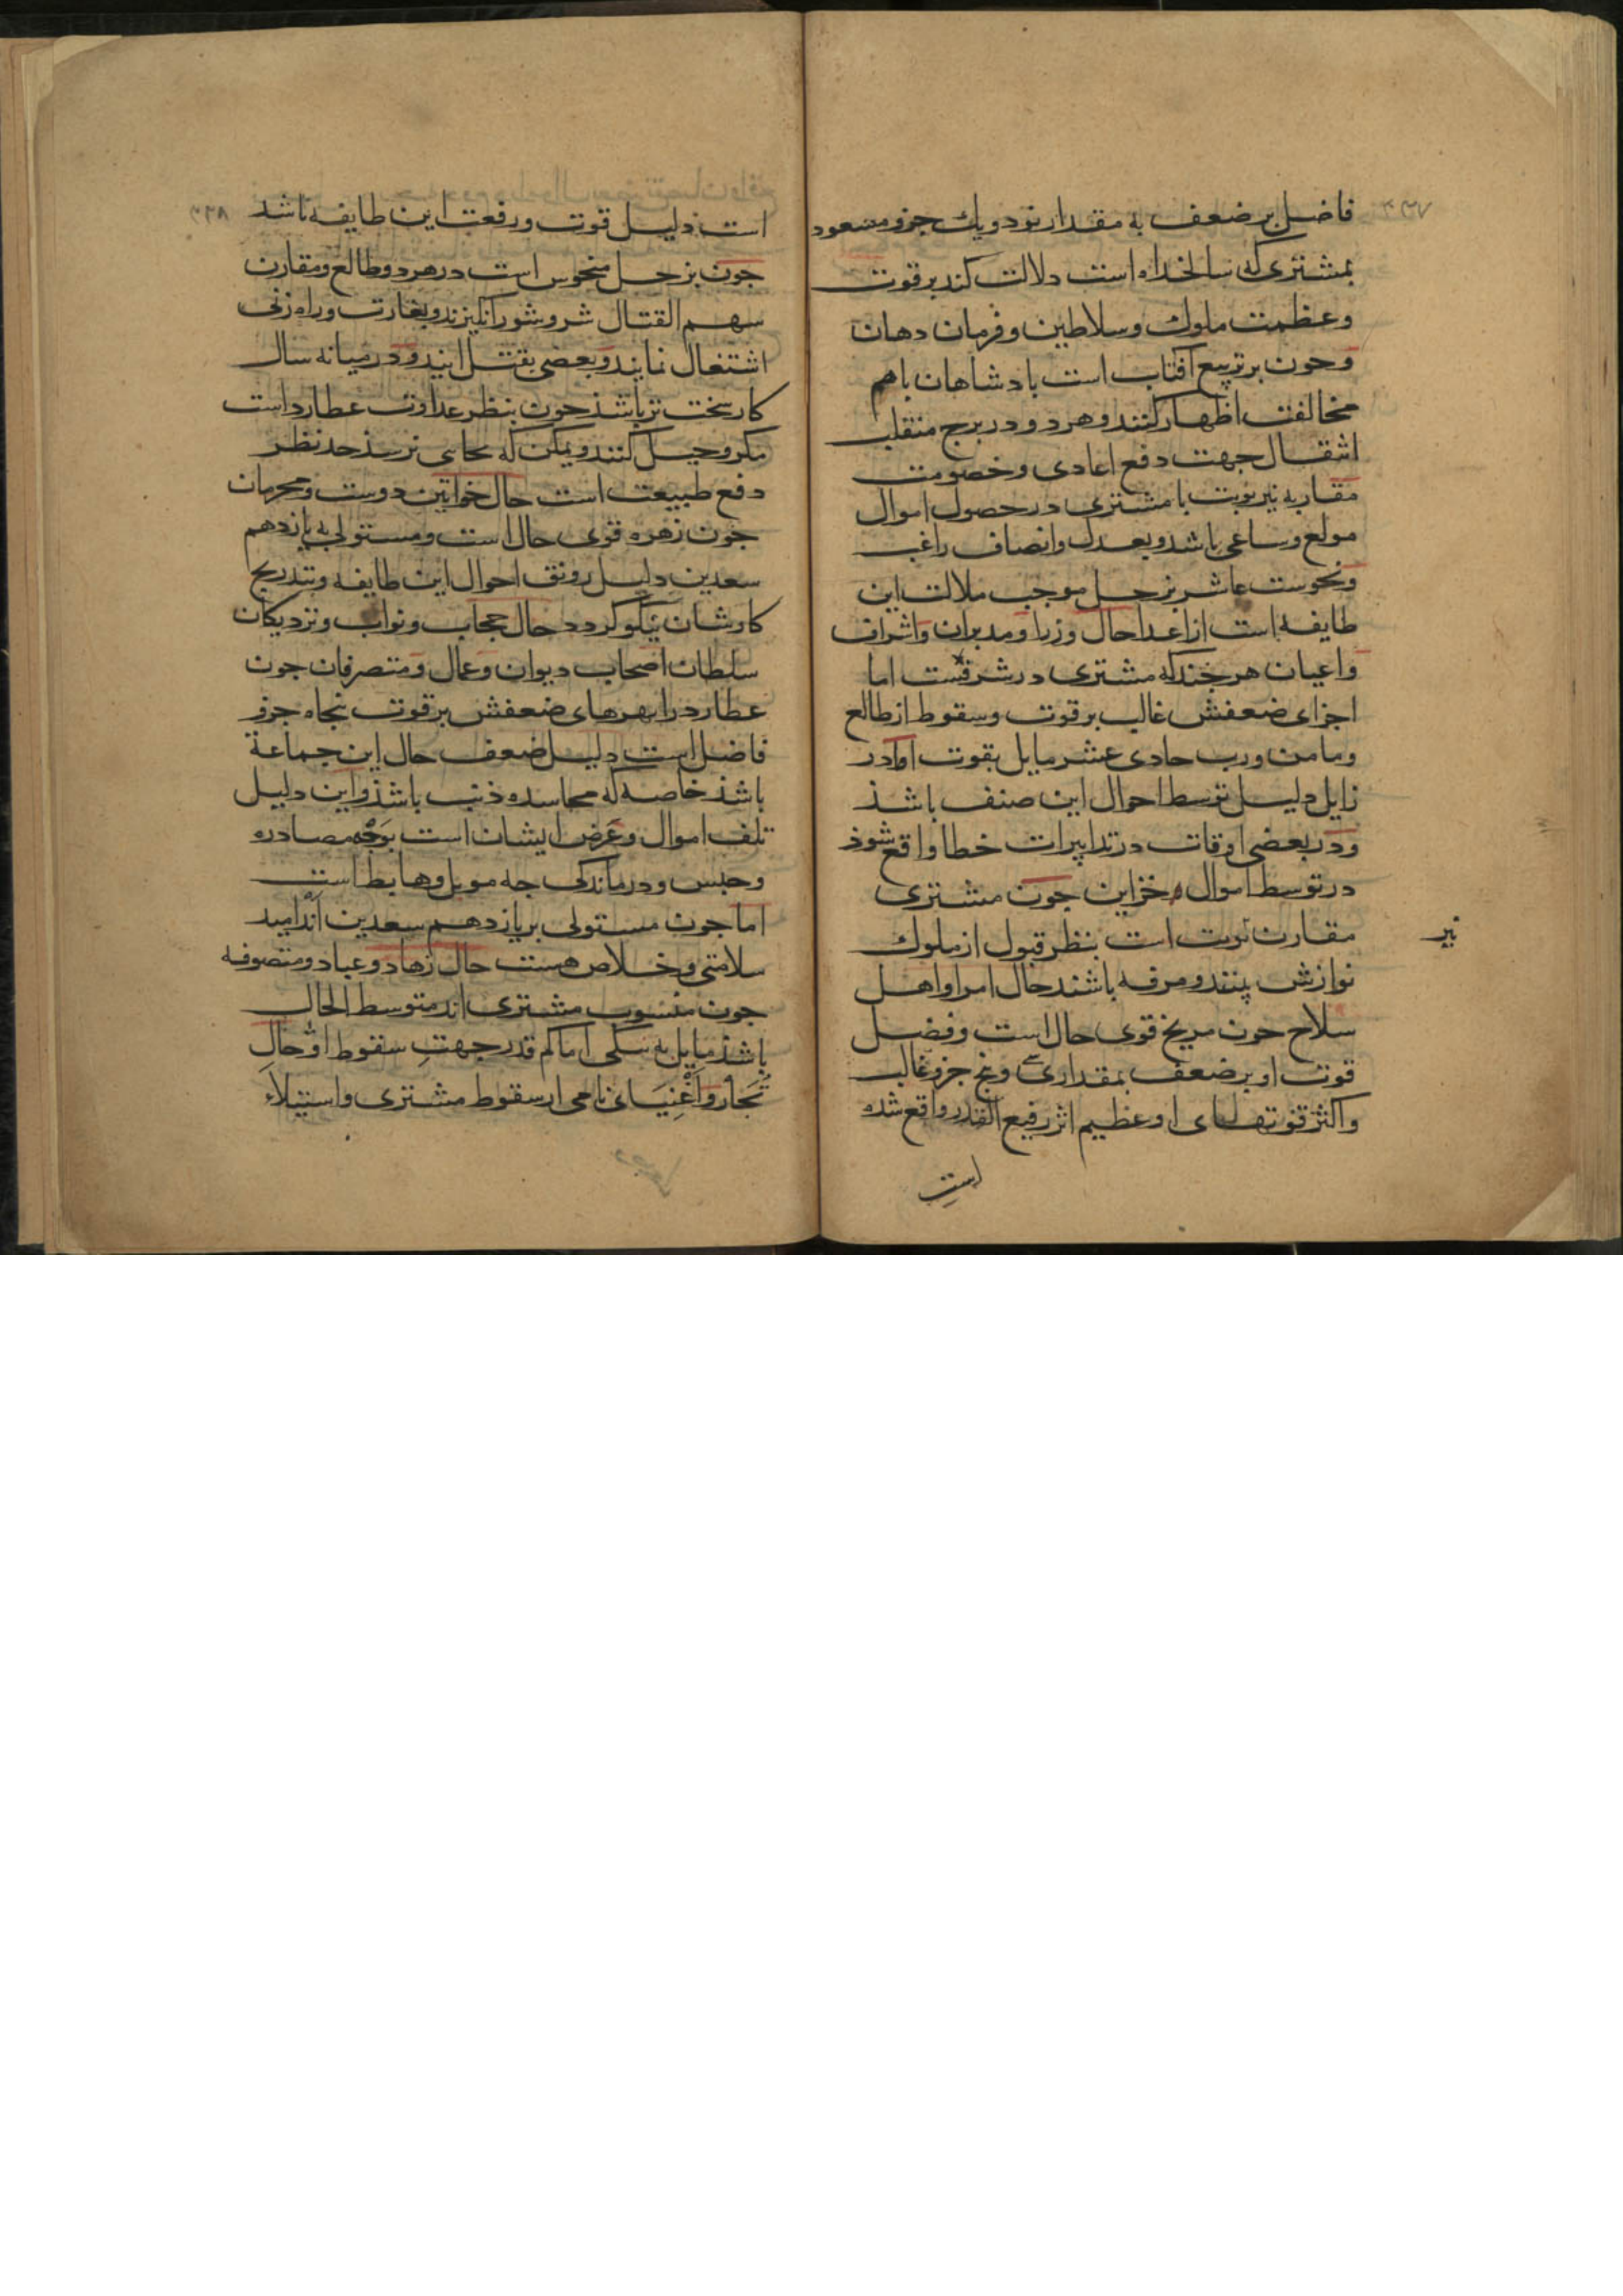 فاضل بر ضعف به مقدار نود و یك جزو و مسعود
بمشتری که سالخداه است دلالت کند بر قوت
وعظمت ملوك وسلاطین وفرمان دهان
وحون بر تربیع افتاب است بادشاهان باهم
مخالفت اظهار کنند وهر دو در برج منقلب
انتقال جهت دفع اعادی وخصومت
مقاربه نیر نوبت با مشتری در حصول اموال
مولع وساعی باشد وبعدل وانصاف راغب
ونحوست عاشر بزحل موجب ملالت این
طایفه است از اعدا حال وزرا ومدبران واشراف
واعیان هر جند که مشتری در شرفست اما
اجزای ضعفش غالب بر قوت وسقوط از طالع
ومامن ورب حادی عشر مایل بقوت اما در
زایل دلیل توسط احوال این صنف باشذ
ودر بعضی اوقات در تدابیرات خطا واقع شوذ
در توسط اموال وخزاین جون مشتری
نیر
مقارن نوبت است بنظر قبول از ملوك
نوازش بینند ومرفه باشند حال امرا واهل
سلاح حون مریخ قوی حال است وفضل
قوت او بر ضعف بمقدار سی وپنج جزو غالب
واکثر قوتهای او عظیم اثر رفیع القدر واقع شده
است
است دلیل قوت ورفعت این طایفه باشد
جون بزحل منحوس است در هر دو طالع ومقارن
سهم القتال شر وشور انکیزند وبغارت وراه زنی
اشتغال نمایند وبعضی بقتل ایند ودر میانه سال
کار سخت تر باشذ جون بنظر عداوت عطارد است
مکر وحیل کنند ویمکن که بجای نرسذ جد نظر
دفع طبیعت است حال خواتین دوست ومحرمان
جون زهره قوی حال است ومستولی به یازدهم
سعدین دلیل رونق احوال این طایفه وبتدریج
کارشان نیکو کردد حال حجاب ونواب ونزدیکان
سلطان اصحاب دیوان وعمال ومتصرفان جون
عطارد را بهرهای ضعفش بر قوت پنجاه جزو
فاضل است دلیل ضعف حال این جماعة
باشذ خاصه که محاسده ذنب باشذ واین دلیل
تلف اموال وعرض ایشان است بوجه مصادره
وحبس ودرماندکی جه موبل وهابط است
اما جون مستولی بر یازدهم سعدین اند امید
سلامتی وخلاص هست حال زهاد وعباد ومتصوفه
جون منسوب مشتری اند متوسط الحال
باشذ مایل به نیکی اما کم قدر جهت سقوط او حال
تجار واغنیای نامی از سقوط مشتری واستیلاء